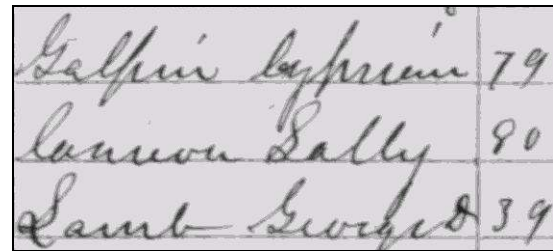 Galpin Cyprien 79
Cannon Sally 80
Lamb George D 39